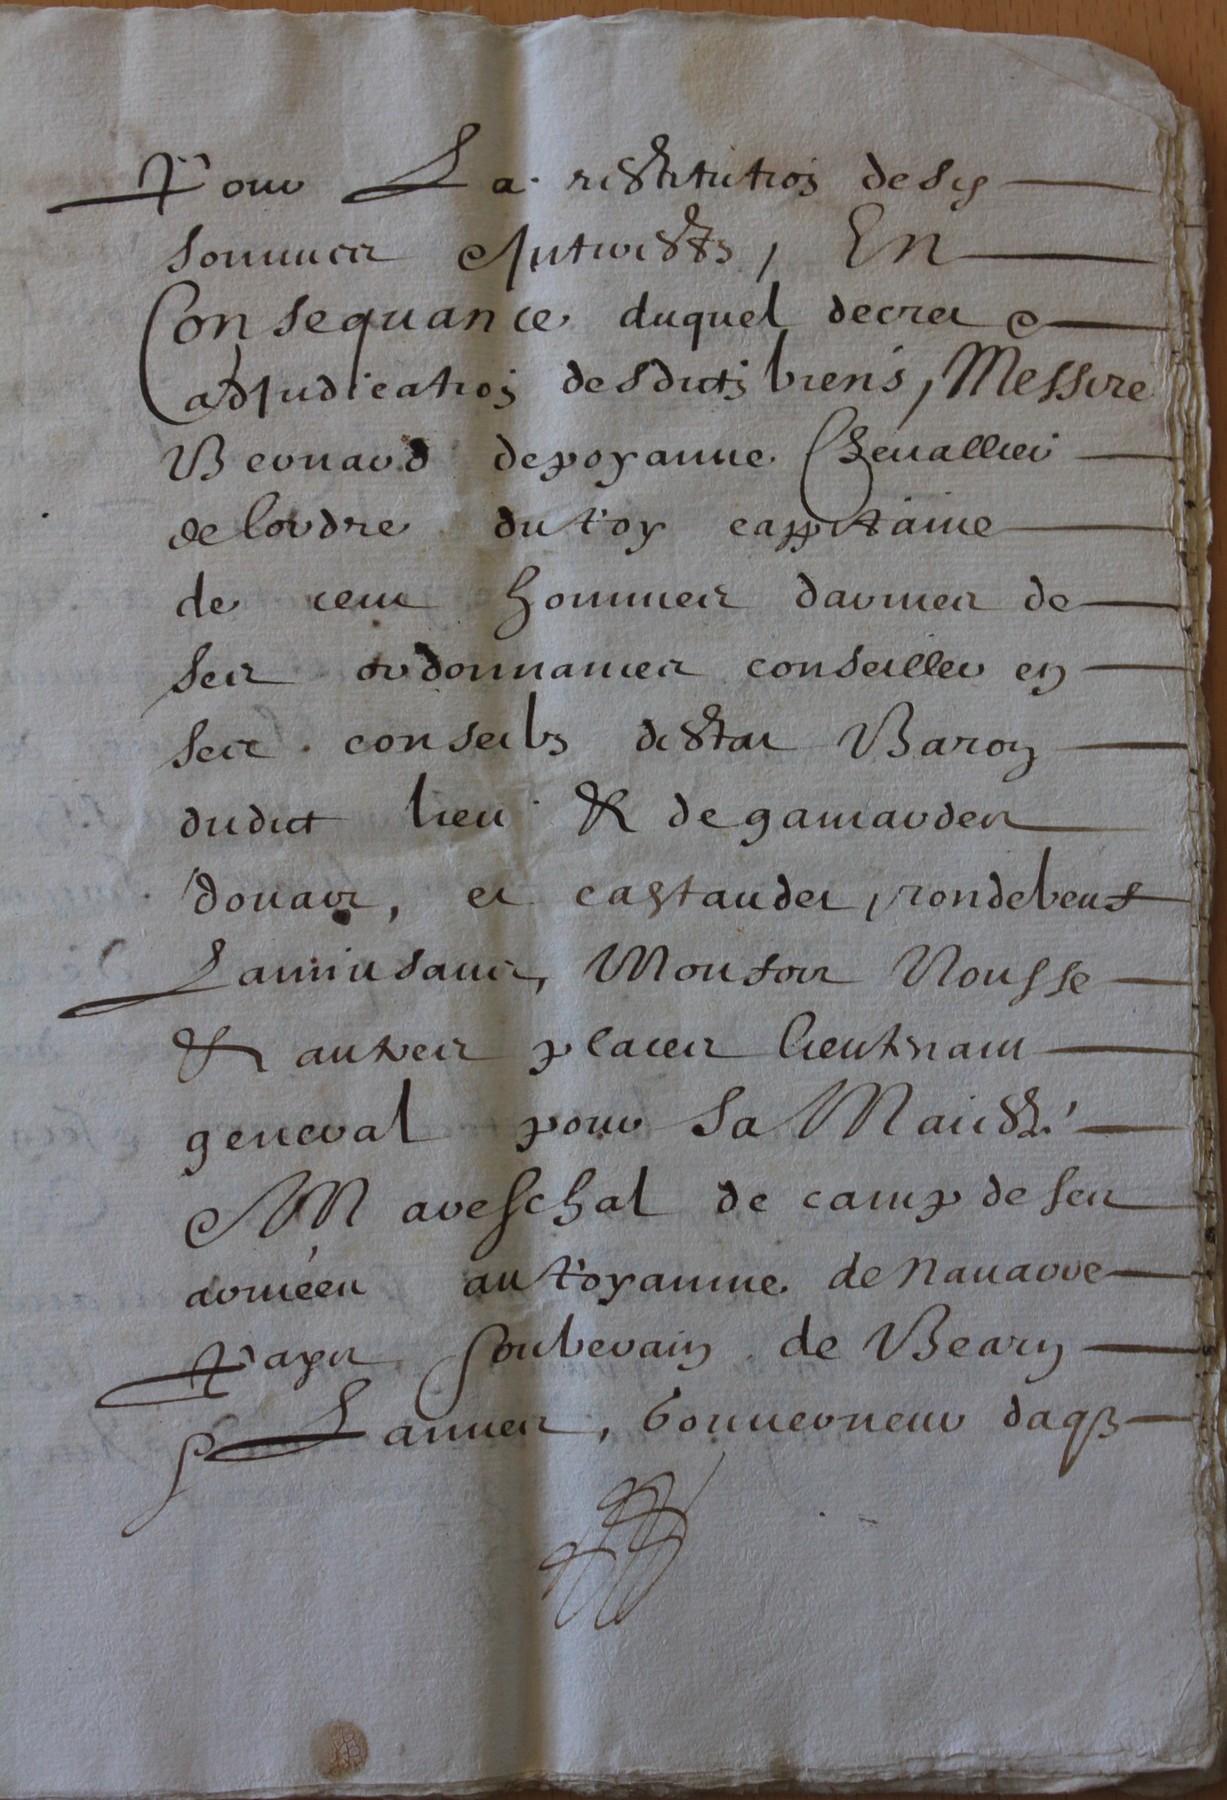 Pour La restitution desd
sommes & Interestz, En
Consequance duquel decret &
adjudication desdictz biens, Messire
Bernard depoyanne Chevallier
de lordre du roy cappitaine
de cent hommes darmes de
ses ordonnances conseiller en
ses conseilz destat Baron
dudict lieu & de gamardes
donacr, et castandet,
Monsoer Nousse
& autres places lieutenant
general pour Sa Maiesté
Mareschal de camp de ses
armées au royaume de Navarre
Pays souberain de Bearn
Lannes, Gouverneur daqs